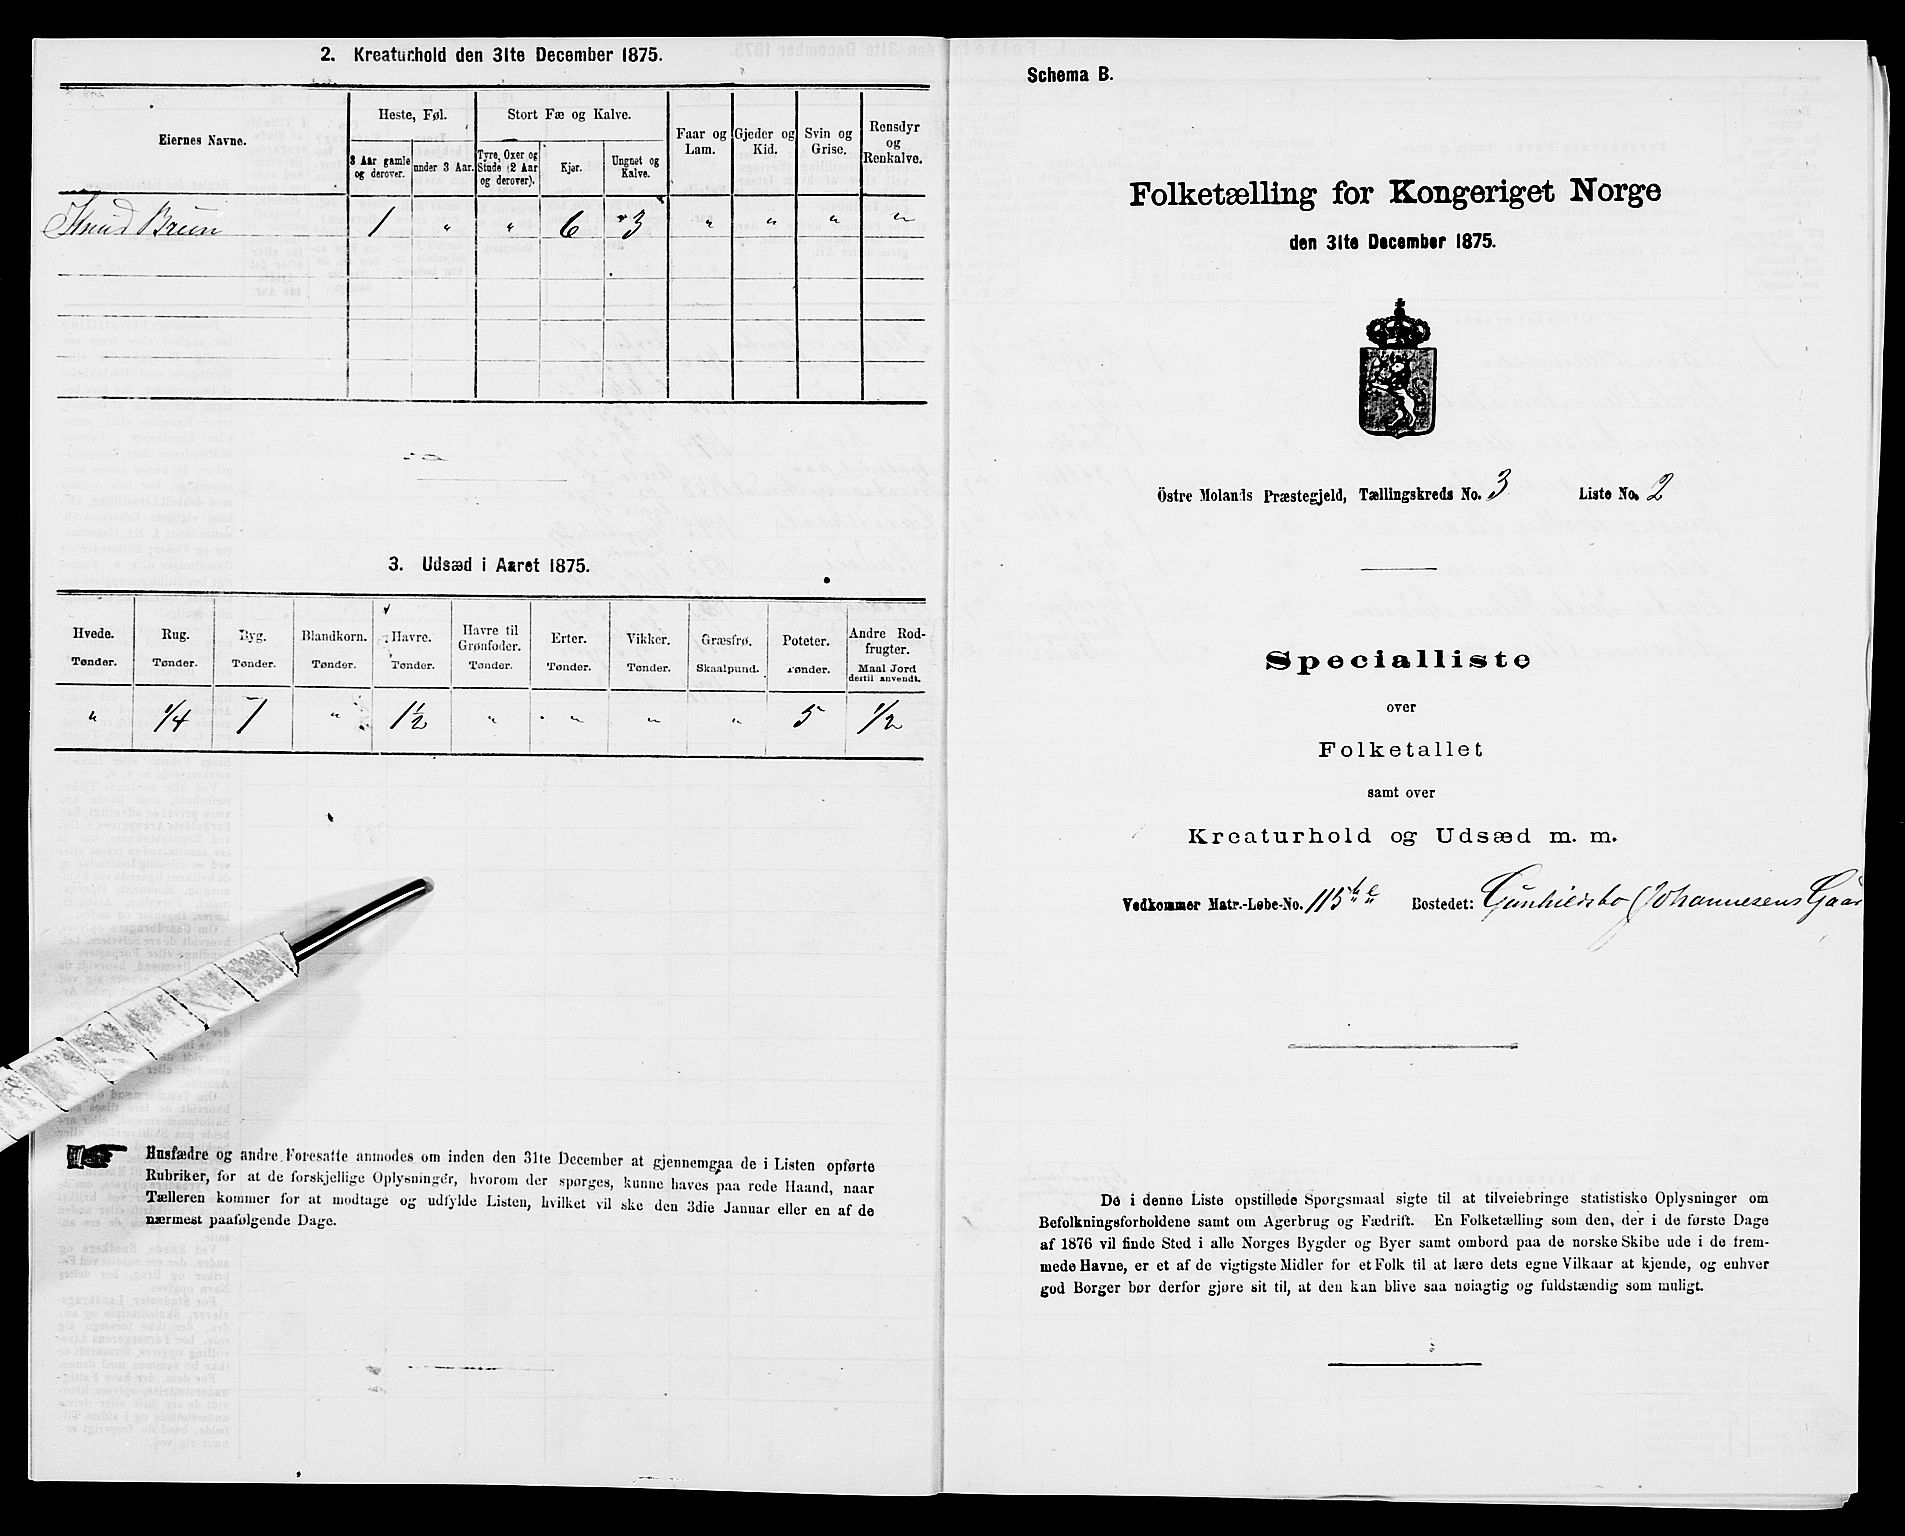 2. Kreaturhold den 31te December 1875.
Eiernes Navne.
Heste, Føl.
Stort Fæ og Kalve.
Faar og Lam.
Gjeder og Kid.
Svin og Grise.
Rensdyr og Renkalve.
3 Aar gamle og derover.
under 3 Aar.
Tyre, Oxer og Stude (2 Aar og derover).
Kjør.
Ungnøt og Kalve.
Knud Bruun 1 " " 6 3 " " " "
3. Udsæd i Aaret 1875.
Hvede. Rug. Byg. Blandkorn. Havre. Havre til Grønfoder. Erter. Vikker. Græsfrø. Poteter. Andre Rodfrugter.
Tønder. Tønder. Tønder. Tønder. Tønder. Tønder. Tønder. Tønder. Skaalpund. Tønder. Maal Jord dertil anvendt.
" 1/4 1 " 1 1/2 " " " " 5 1/2
Husfædre og andre Foresatte anmodes om inden den 31te December at gjennemgaa de i Listen opførte
Rubriker, for at de forskjellige Oplysninger, hvorom der spørges, kunne haves paa rede Haand, naar
Tælleren kommer for at modtage og udfylde Listen, hvilket vil ske den 3die Januar eller en af de
nærmest paafølgende Dage.
Schema B.
Folketælling for Kongeriget Norge
den 31te December 1875.
Östre Molands Præstegjeld, Tællingskreds No. 3 Liste No. 2
Specialliste
over
Folketallet
samt over
Kreaturhold og Udsæd m. m.
Vedkommer Matr.-Løbe-No. 115 Bostedet: Gunhildsbo Johannesens Gaar
De i denne Liste opstillede Spørgsmaal sigte til at tilveiebringe statistiske Oplysninger om
Befolkningsforholdene samt om Agerbrug og Fædrift. En Folketælling som den, der i de første Dage
af 1876 vil finde Sted i alle Norges Bygder og Byer samt ombord paa de norske Skibe ude i de frem-
mede Havne, er et af de vigtigste Midler for et Folk til at lære dets egne Vilkaar at kjende, og enhver
god Borger bør derfor gjøre sit til, at den kan blive saa nøiagtig og fuldstændig som muligt.